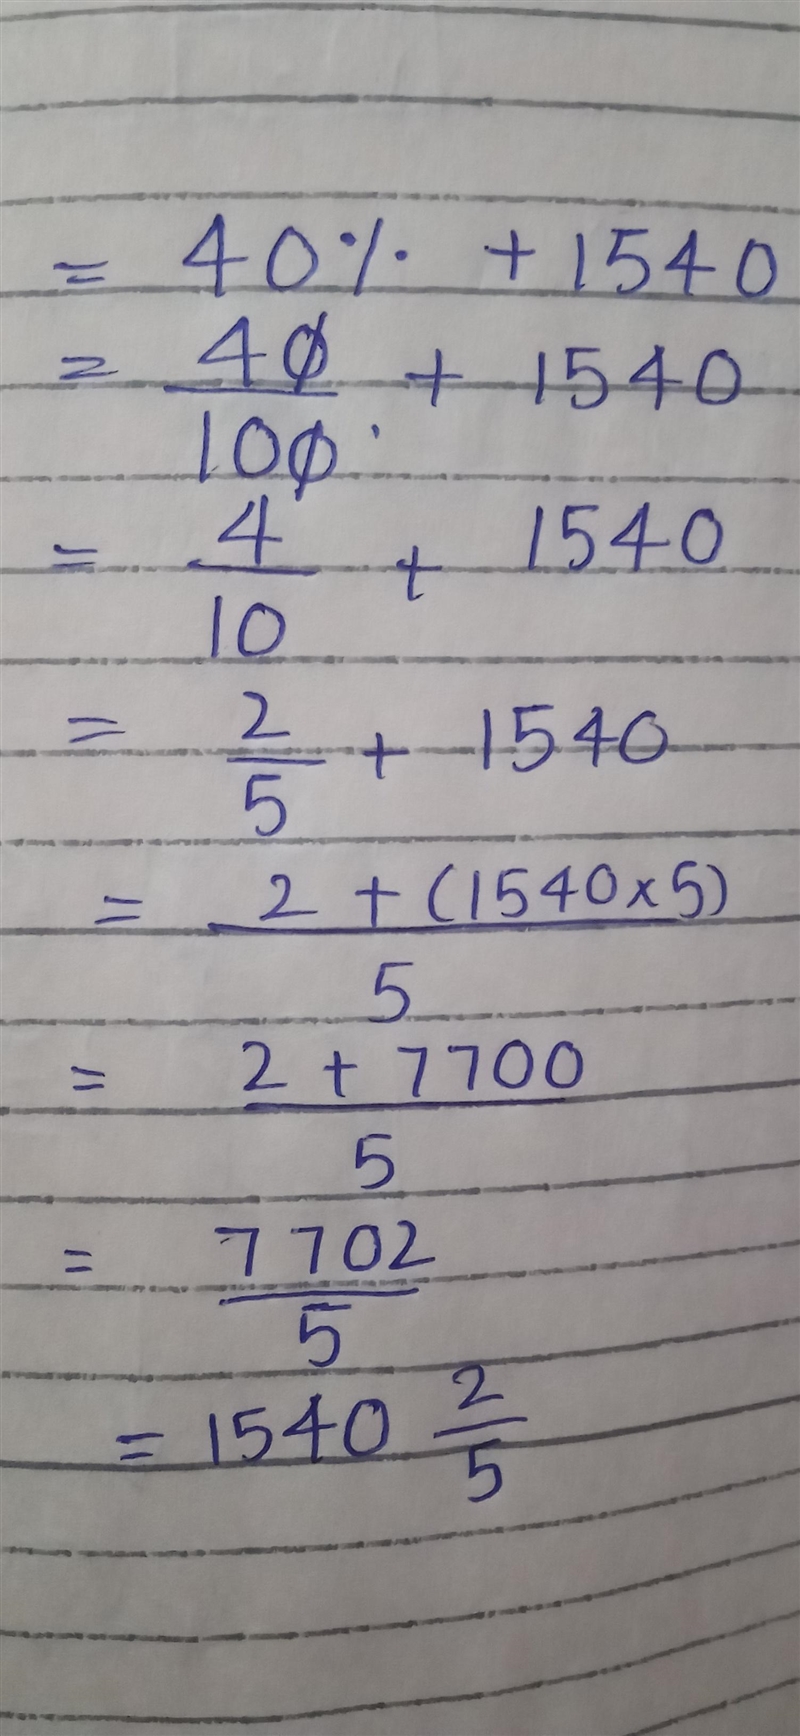 = 40% + 1540
= 40/100 + 1540
= 4/10 + 1540
= 2/5 + 1540
= 2 + (1540×5)/5
= 2 + 7700/5
= 7702/5
= 1540 2/5